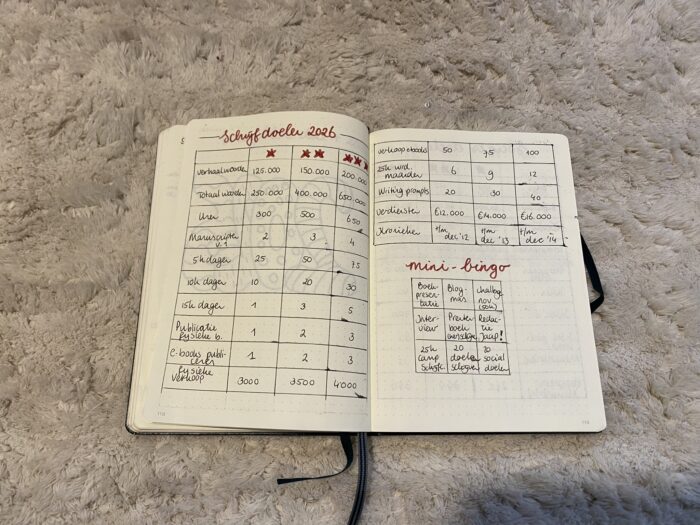 Schrijfdoelen 2026
Verhaalwoorden 125.000 150.000 200.000
Totaal woorden 250.000 400.000 650.000
Uren 300 500 650
Manuscripten v.1 2 3 4
5h dagen 25 50 75
10h dagen 10 20 30
15h dagen 1 3 5
Publicatie fysieke b. 1 2 3
e-books publiceren 1 2 3
fysieke verkoop 3000 3500 4000
verkoop ebooks 50 75 100
25h wrd. maanden 6 9 12
Writing prompts 20 30 40
Verdiensten €12.000 €14.000 €16.000
Kronieken t/m dec '12 t/m dec '13 t/m dec '14
mini-bingo
Boek presentatie Blogmas challenge nov (50h)
Interview Prentenboek Redactie Jaap!
25h camp schrijf. 20 doelen 80 social doelen
118
119